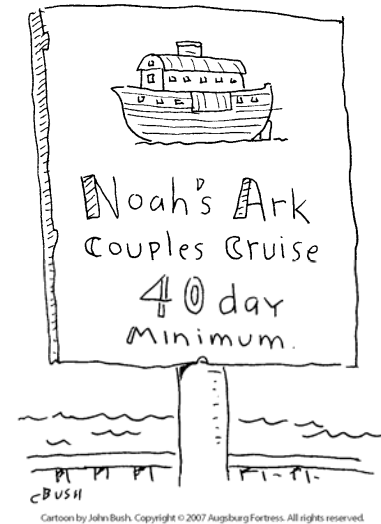 Noah's Ark
Couples Cruise
40 day
Minimum.
CBUSH
Cartoon by John Bush. Copyright © 2007 Augsburg Fortress. All rights reserved.